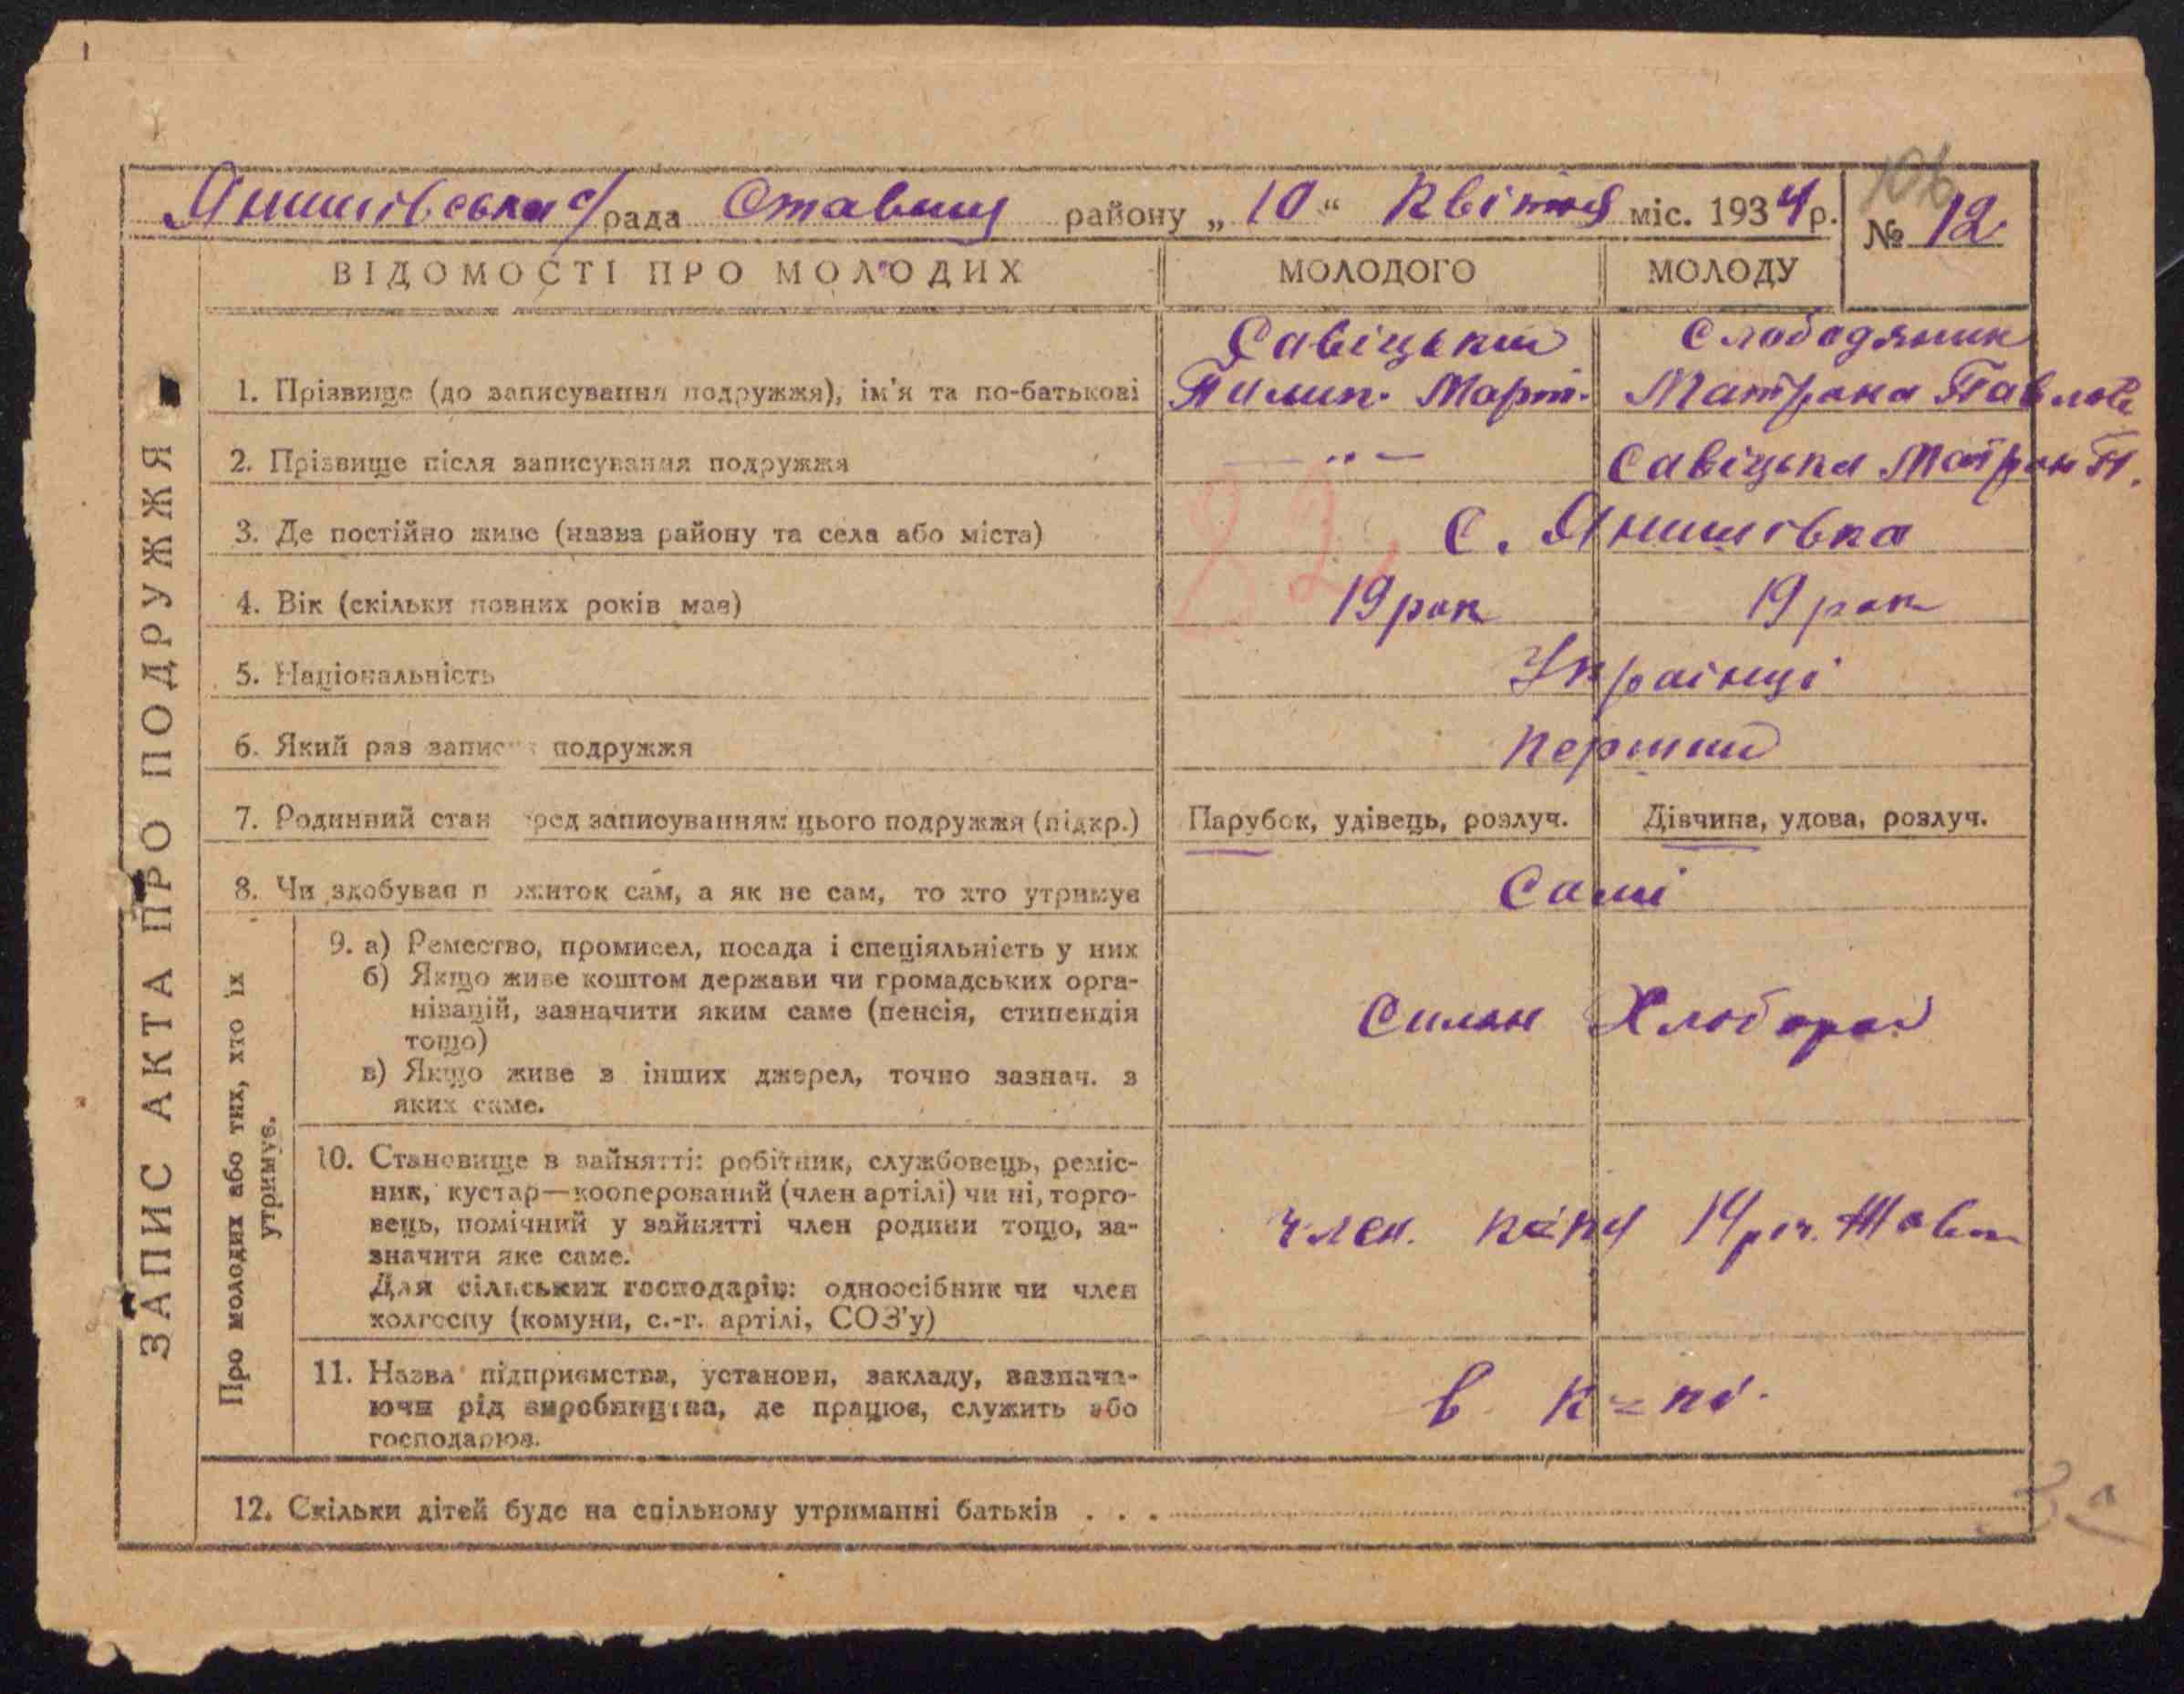 106
Янишівська с/рада Ставищ району „10“ Квітня міс. 1934 р. № 12
ВІДОМОСТІ ПРО МОЛОДИХ МОЛОДОГО МОЛОДУ
Савіцький Слободяник
1. Прізвище (до записування подружжя), ім'я та по-батькові Пилип. Март. Матрона Павлов
2. Прізвище після записування подружжя — „ — Савіцька Матрон П.
82
3. Де постійно живе (назва району та села або міста) С. Янишівка
4. Вік (скільки повних років має) 19 рок 19 рок
5. Національність Украінці
6. Який раз запису подружжя перший
7. Родинний стан перед записуванням цього подружжя (підкр.) Парубок, удівець, розлуч. Дівчина, удова, розлуч.
8. Чи здобував прожиток сам, а як не сам, то хто утримує Самі
9. а) Ремество, промисел, посада і спеціяльність у них
б) Якщо живе коштом держави чи громадських орга-
нізацій, зазначити яким саме (пенсія, стипендія
тощо)
Хлібороб
в) Якщо живе з інших джерел, точно зазнач. з
яких саме.
10. Становище в зайнятті: робітник, службовець, реміс-
ник, кустар—кооперований (член артілі) чи ні, торго-
вець, помічний у зайнятті член родини тощо, за-
значити яке саме.
член. к-пу 14 річ. Жовт
Для сільських господарів: одноосібник чи член
холгоспу (комуни, с.-г. артілі, СОЗ'у)
11. Назва підприємства, установи, закладу, зазнача-
ючи рід виробництва, де працює, служить або
господарює.
в к-пі.
12. Скільки дітей буде на спільному утриманні батьків . . .
ЗАПИС АКТА ПРО ПОДРУЖЖЯ
Про молодих або тих, хто їх
утримує.